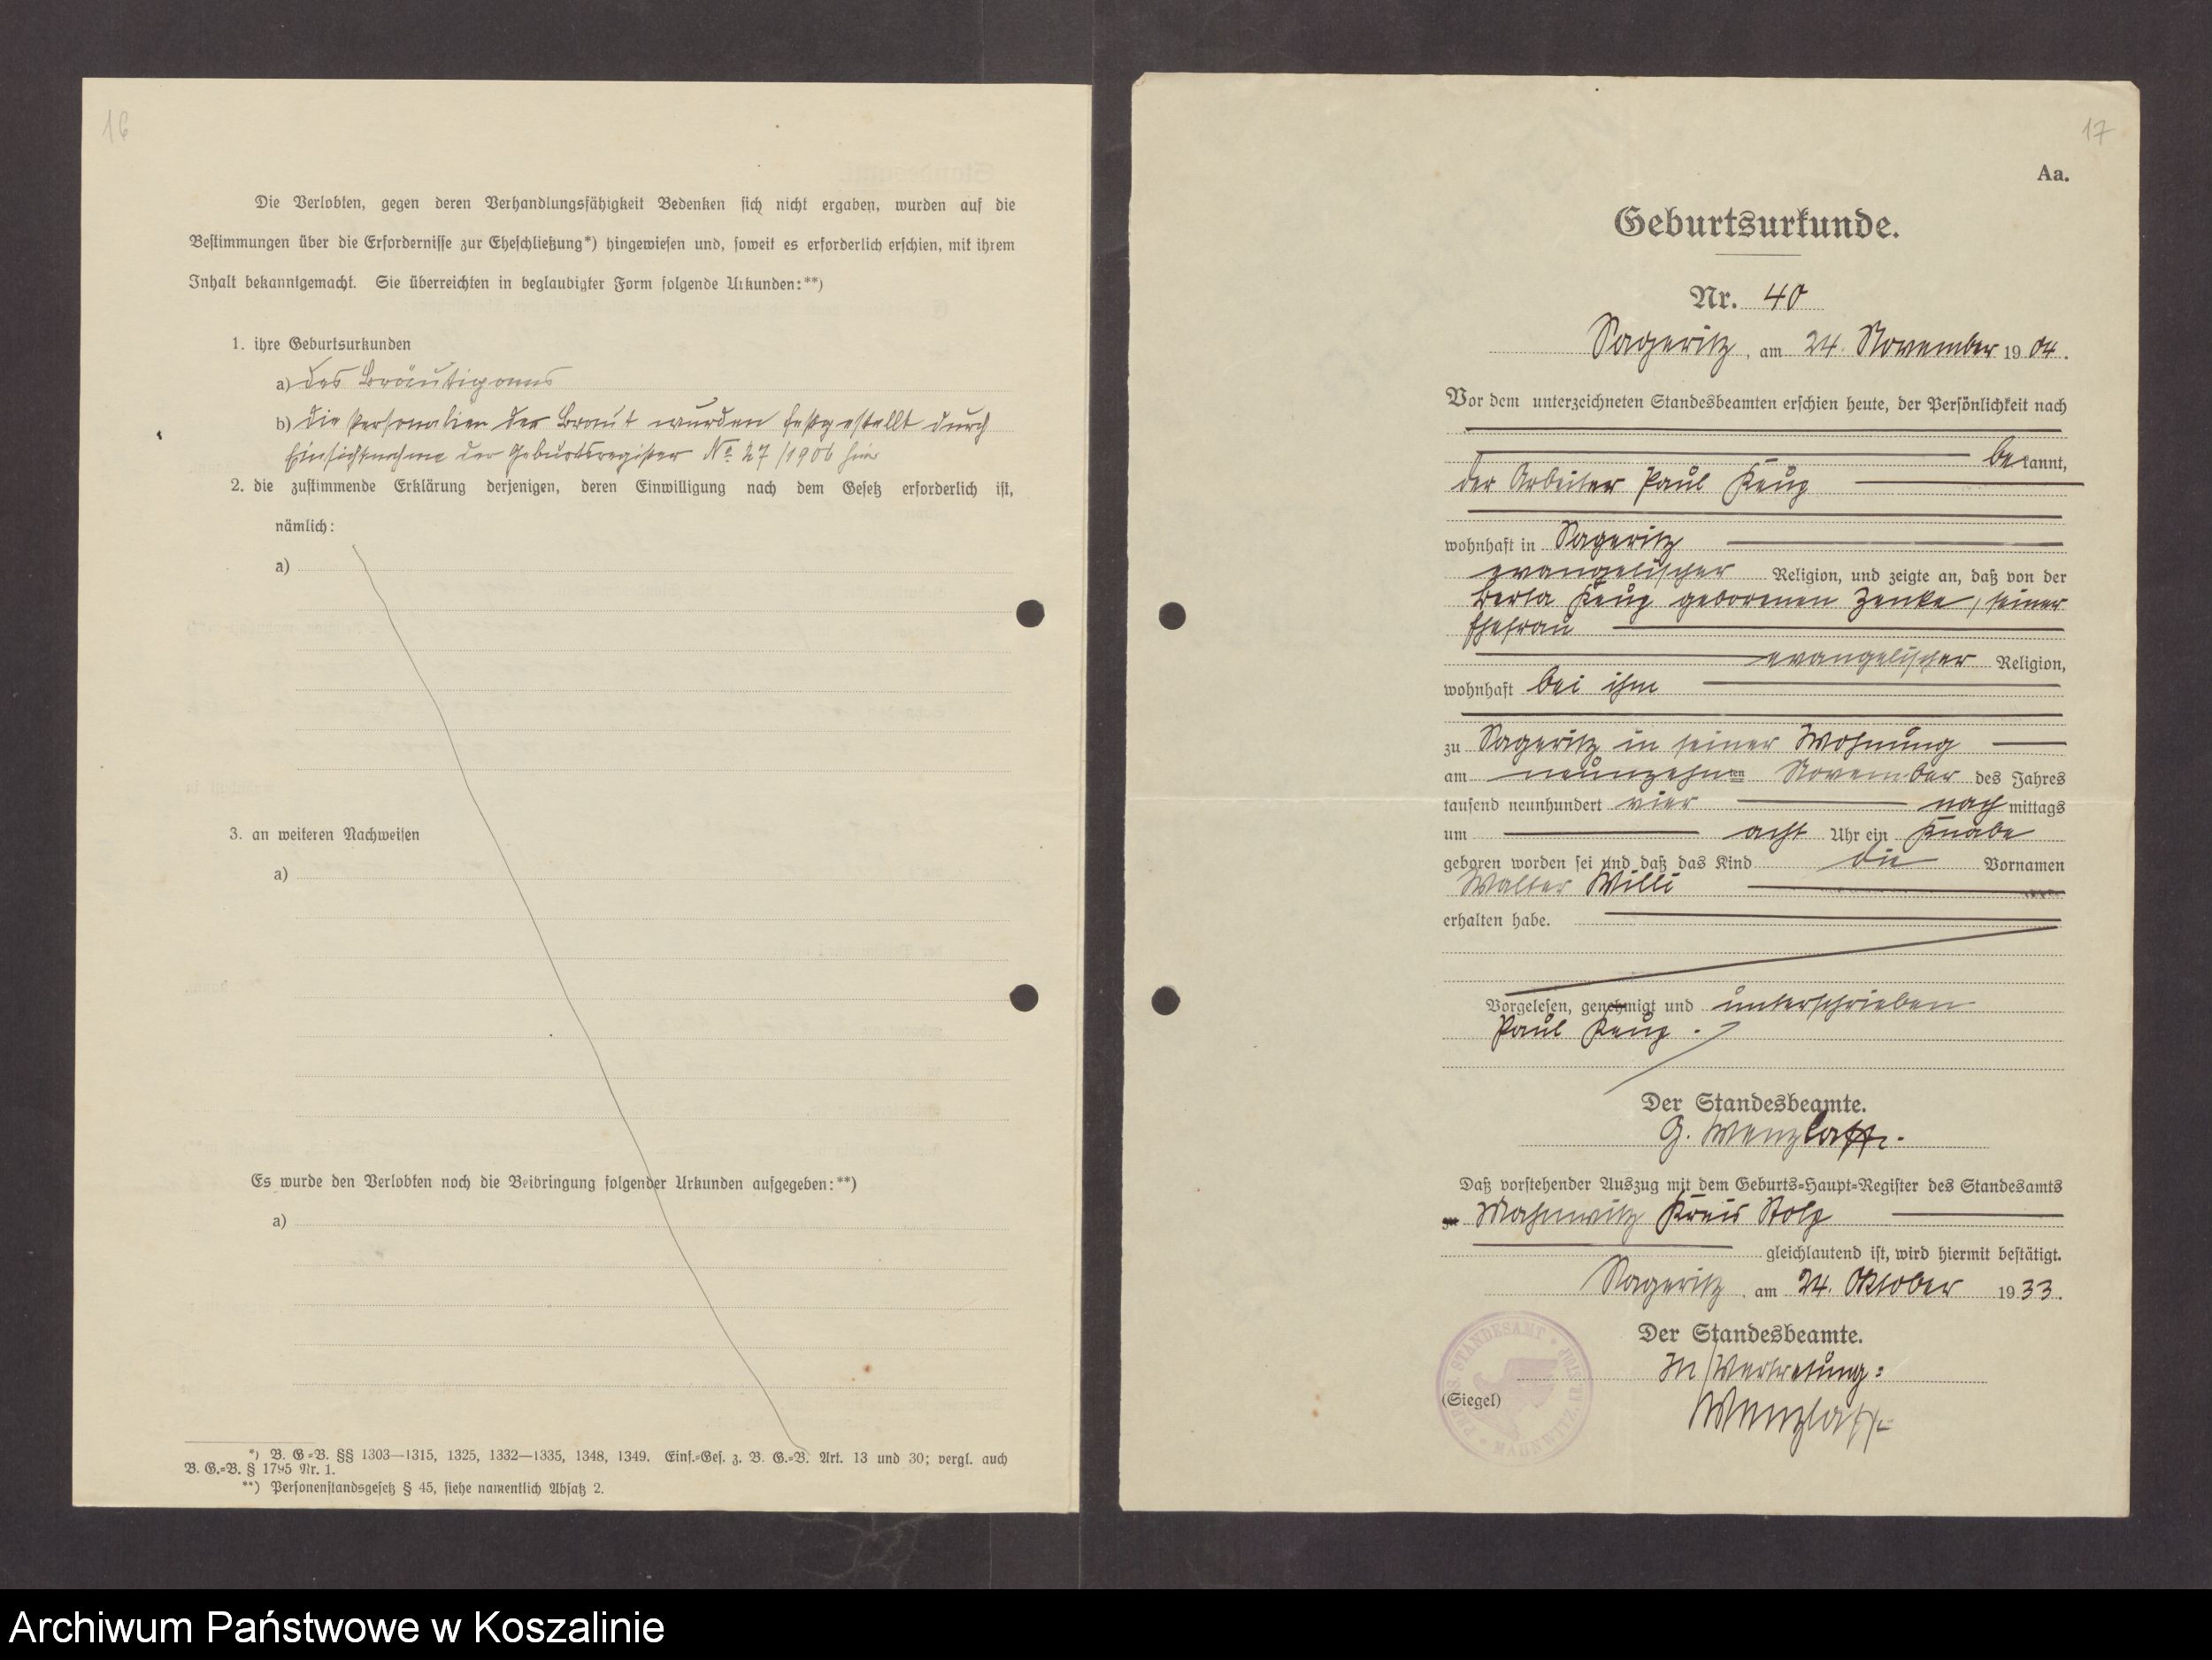 16
Die Verlobten, gegen deren Verhandlungsfähigkeit Bedenken sich nicht ergaben, wurden auf die
Bestimmungen über die Erfordernisse zur Eheschließung*) hingewiesen und, soweit es erforderlich erschien, mit ihrem
Inhalt bekanntgemacht. Sie überreichten in beglaubigter Form folgende Urkunden:**)
1. ihre Geburtsurkunden
a) des Bräutigams
b) die Personalien der Braut wurden festgestellt durch
Einsichtnahme der Geburtsregister No 27/1906 hier
2. die zustimmende Erklärung derjenigen, deren Einwilligung nach dem Gesetz erforderlich ist,
nämlich:
a)
3. an weiteren Nachweisen
a)
Es wurde den Verlobten noch die Beibringung folgender Urkunden aufgegeben:**)
a)
*) B. G.=B. §§ 1303—1315, 1325, 1332—1335, 1348, 1349. Einf.=Ges. z. B. G.=B. Art. 13 und 30; vergl. auch
B. G.=B. § 1795 Nr. 1.
**) Personenstandsgesetz § 45, siehe namentlich Absatz 2.
17
Aa.
Geburtsurkunde.
Nr. 40
Sageritz, am 24. November 1904.
Vor dem unterzeichneten Standesbeamten erschien heute, der Persönlichkeit nach
bekannt,
der Arbeiter Paul Keup
wohnhaft in Sageritz
evangelischer Religion, und zeigte an, daß von der
Berta Keup geborenen Zenke, seiner
Ehefrau
evangelischer Religion,
wohnhaft bei ihm
zu Sageritz in seiner Wohnung
am neunzehnten November des Jahres
tausend neunhundert vier nachmittags
um acht Uhr ein Knabe
geboren worden sei und daß das Kind die Vornamen
Walter Willi
erhalten habe.
Vorgelesen, genehmigt und unterschrieben
Paul Keup.
Der Standesbeamte.
G. Wenzlaff.
Daß vorstehender Auszug mit dem Geburts=Haupt=Register des Standesamts
zu Mahnwitz Kreis Stolp
gleichlautend ist, wird hiermit bestätigt.
Sageritz, am 24. Oktober 1933.
Der Standesbeamte.
In Vertretung:
(Siegel)
Wenzlaff
PREUS. STANDESAMT * MAHNWITZ, KR. STOLP *
Archiwum Państwowe w Koszalinie